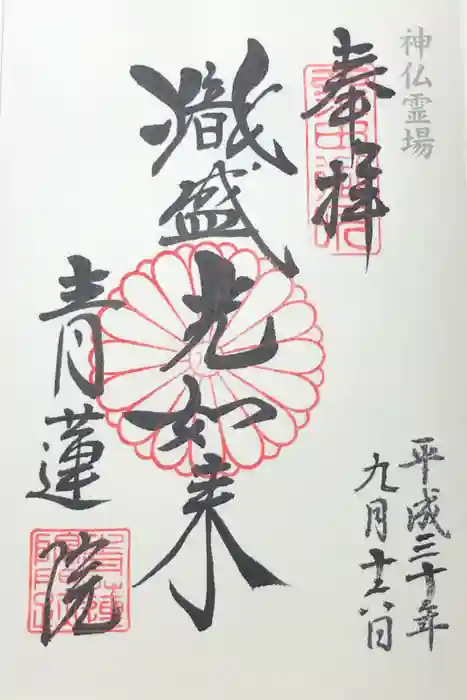 神仏霊場
奉拝
熾盛光如来
青蓮院
平成三十年
九月十六日